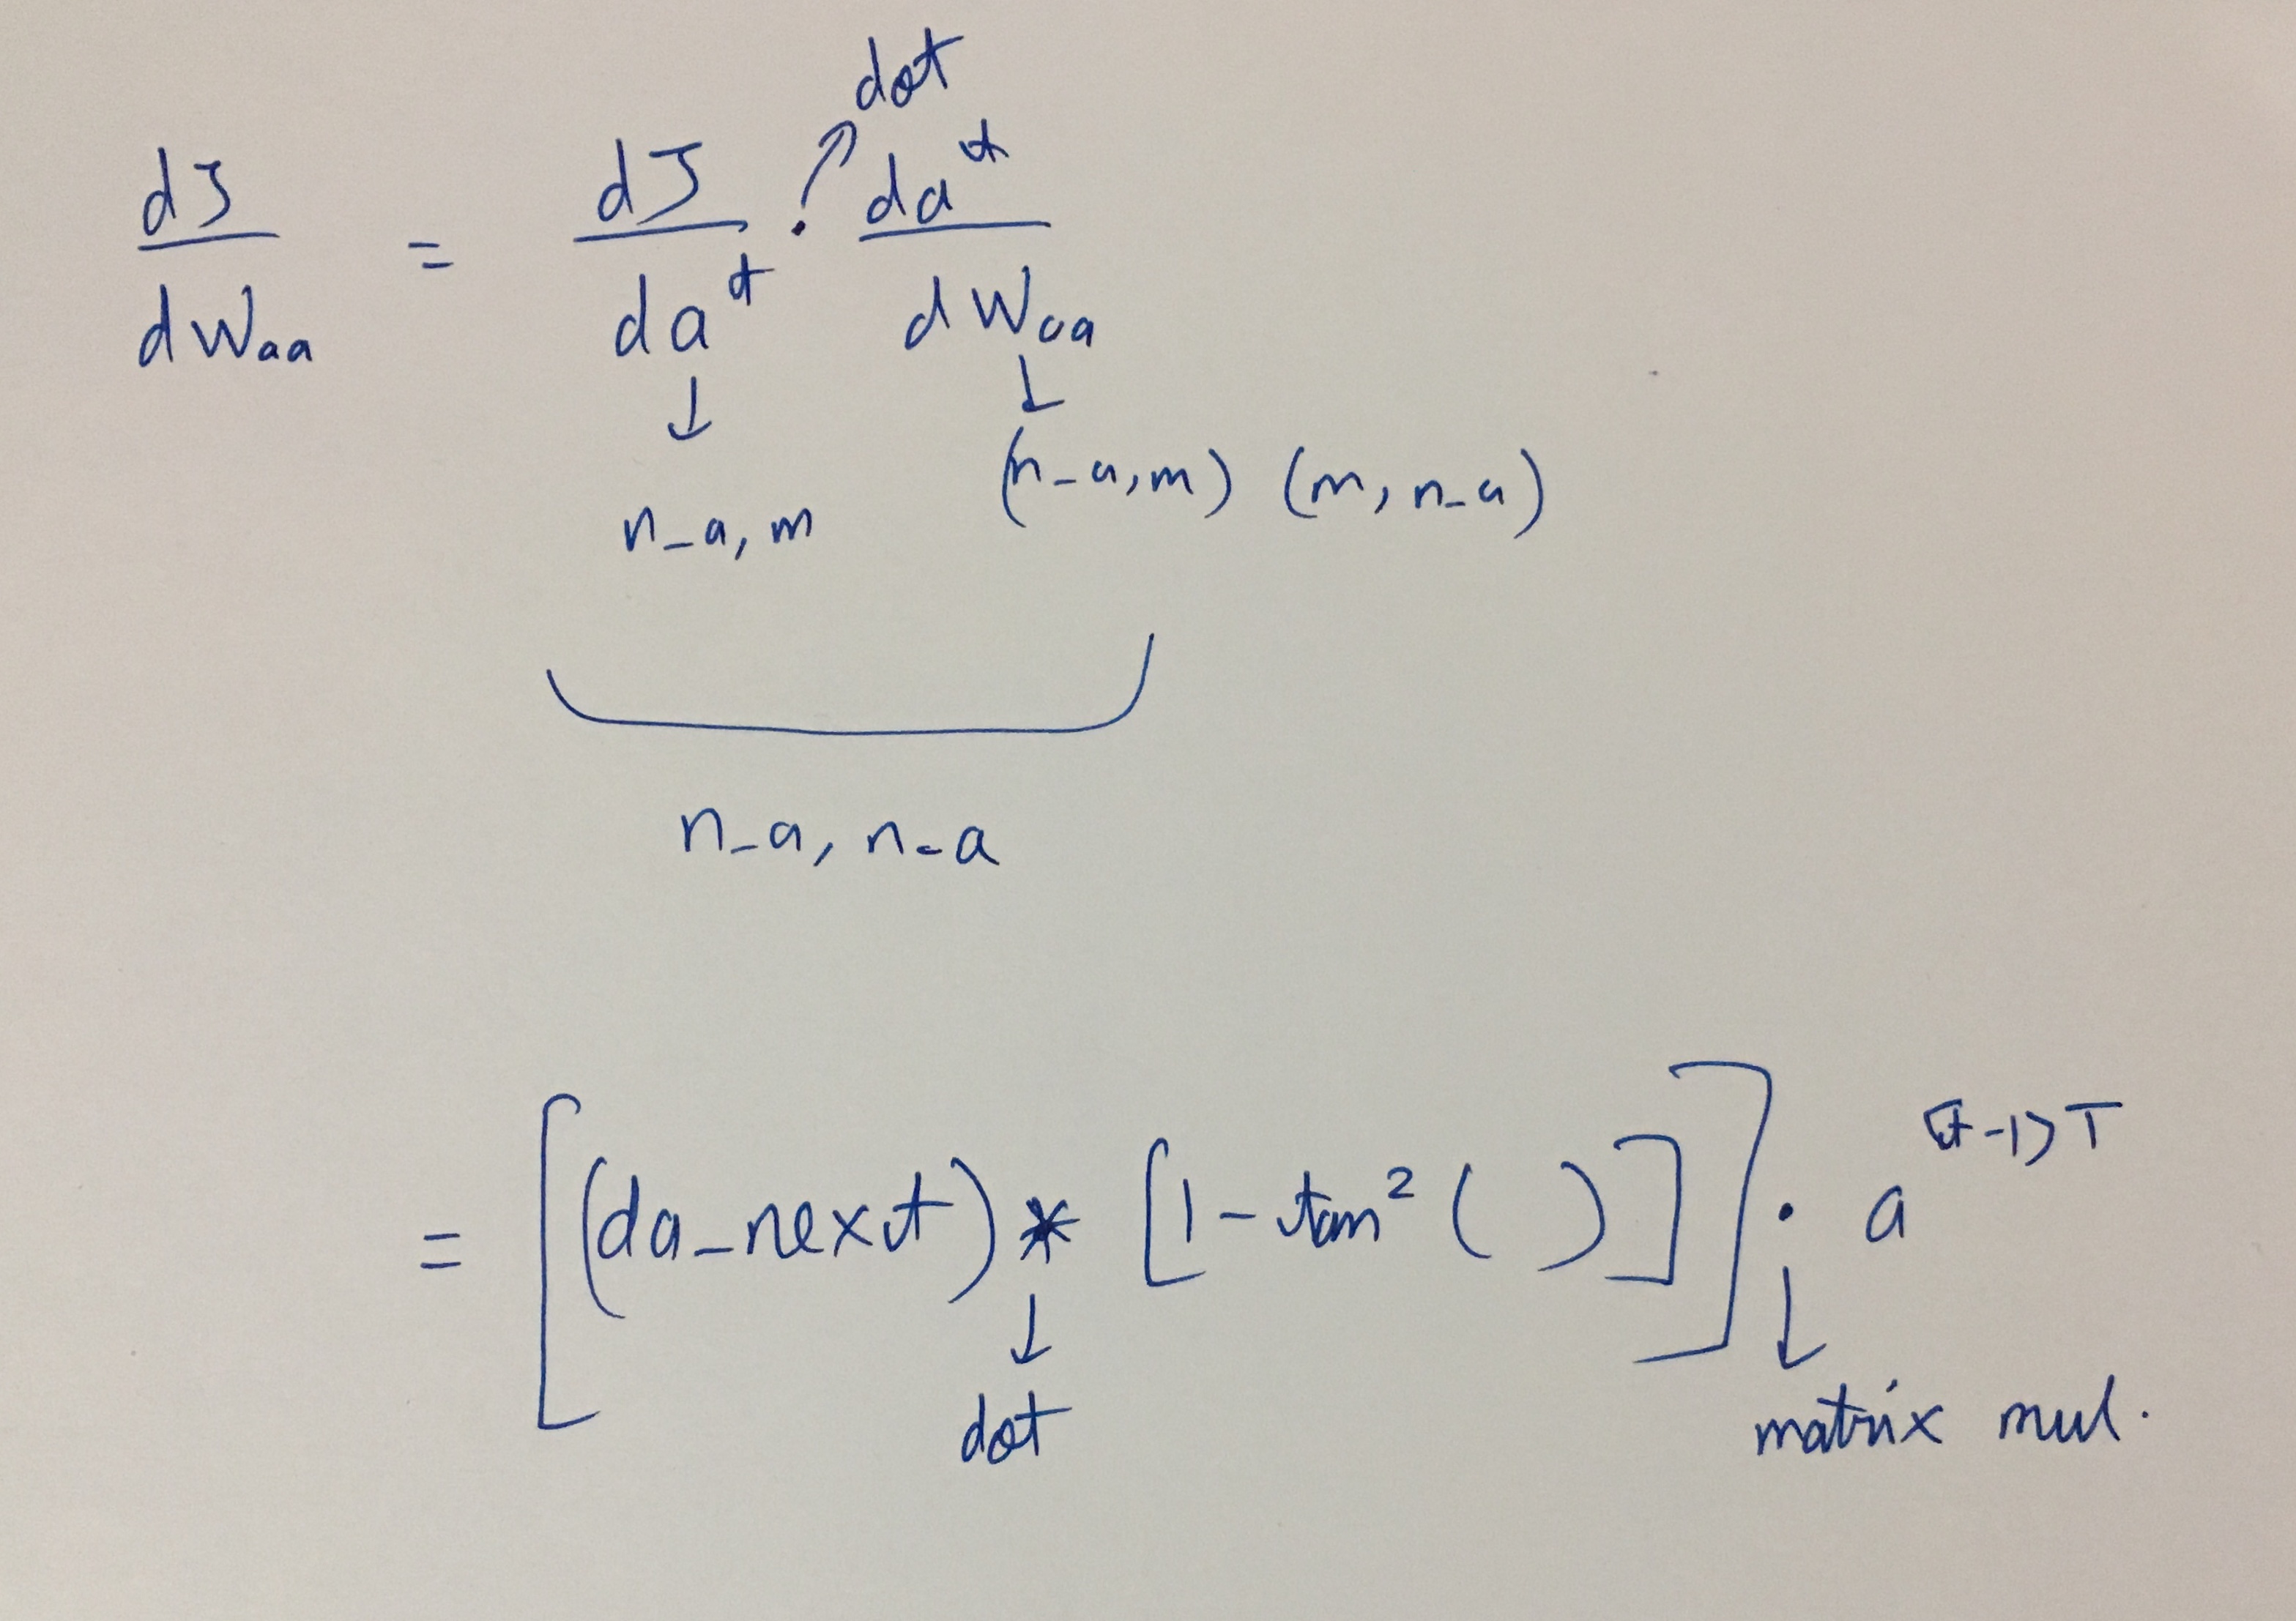 dot
dJ/dWaa = dJ/da^t . da^t/dWaa
↓ ↓
n_a, m (n_a, m) (m, n_a)
n_a, n_a
= [(da_next) * [1 - tan² ( )]] . a^<t-1>T
↓ ↓
dot matrix mul.